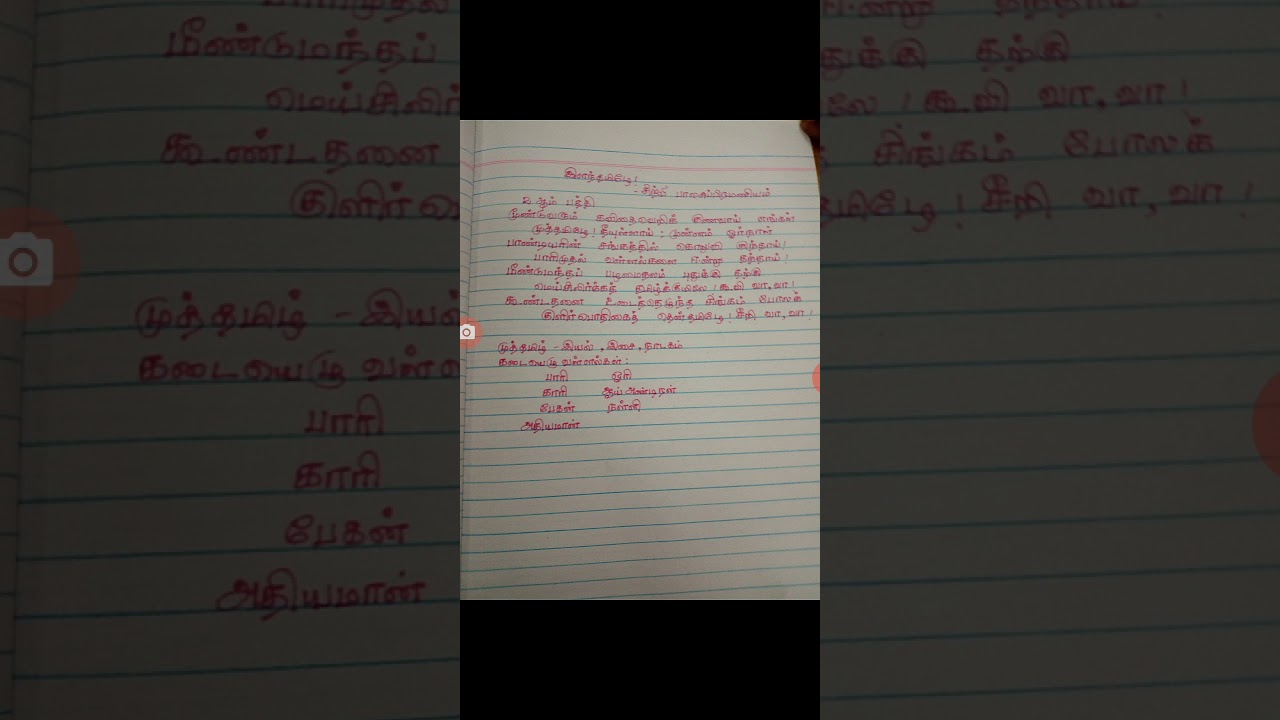 இளந்தமிழே!
- சிற்பி பாலசுப்பிரமணியம்
2 ஆம் பத்தி
மூண்டுவரும் கவிதைவெறிக் குணவாய் எங்கள்
முத்தமிழே! நீயுள்ளாய்; முன்னம் ஓர்நாள்
பாண்டியரின் சங்கத்தில் கொலுவி ருந்தாய்!
பாரிமுதல் வள்ளல்களை ஈன்று தந்தாய்!
மீண்டுமந்தப் பழமைநலம் புதுக்கு தற்கு
மெய்சிலிர்க்கத் தமிழ்க்குயிலே! கூவி வா, வா!
கூண்டதனை உடைத்தெழுந்த சிங்கம் போலக்
குளிர்பொதிகைத் தென்தமிழே! சீறி வா, வா!
முத்தமிழ் - இயல், இசை, நாடகம்
கடையெழு வள்ளல்கள்:
பாரி ஓரி
காரி ஆய் அண்டிரன்
பேகன் நள்ளி
அதியமான்